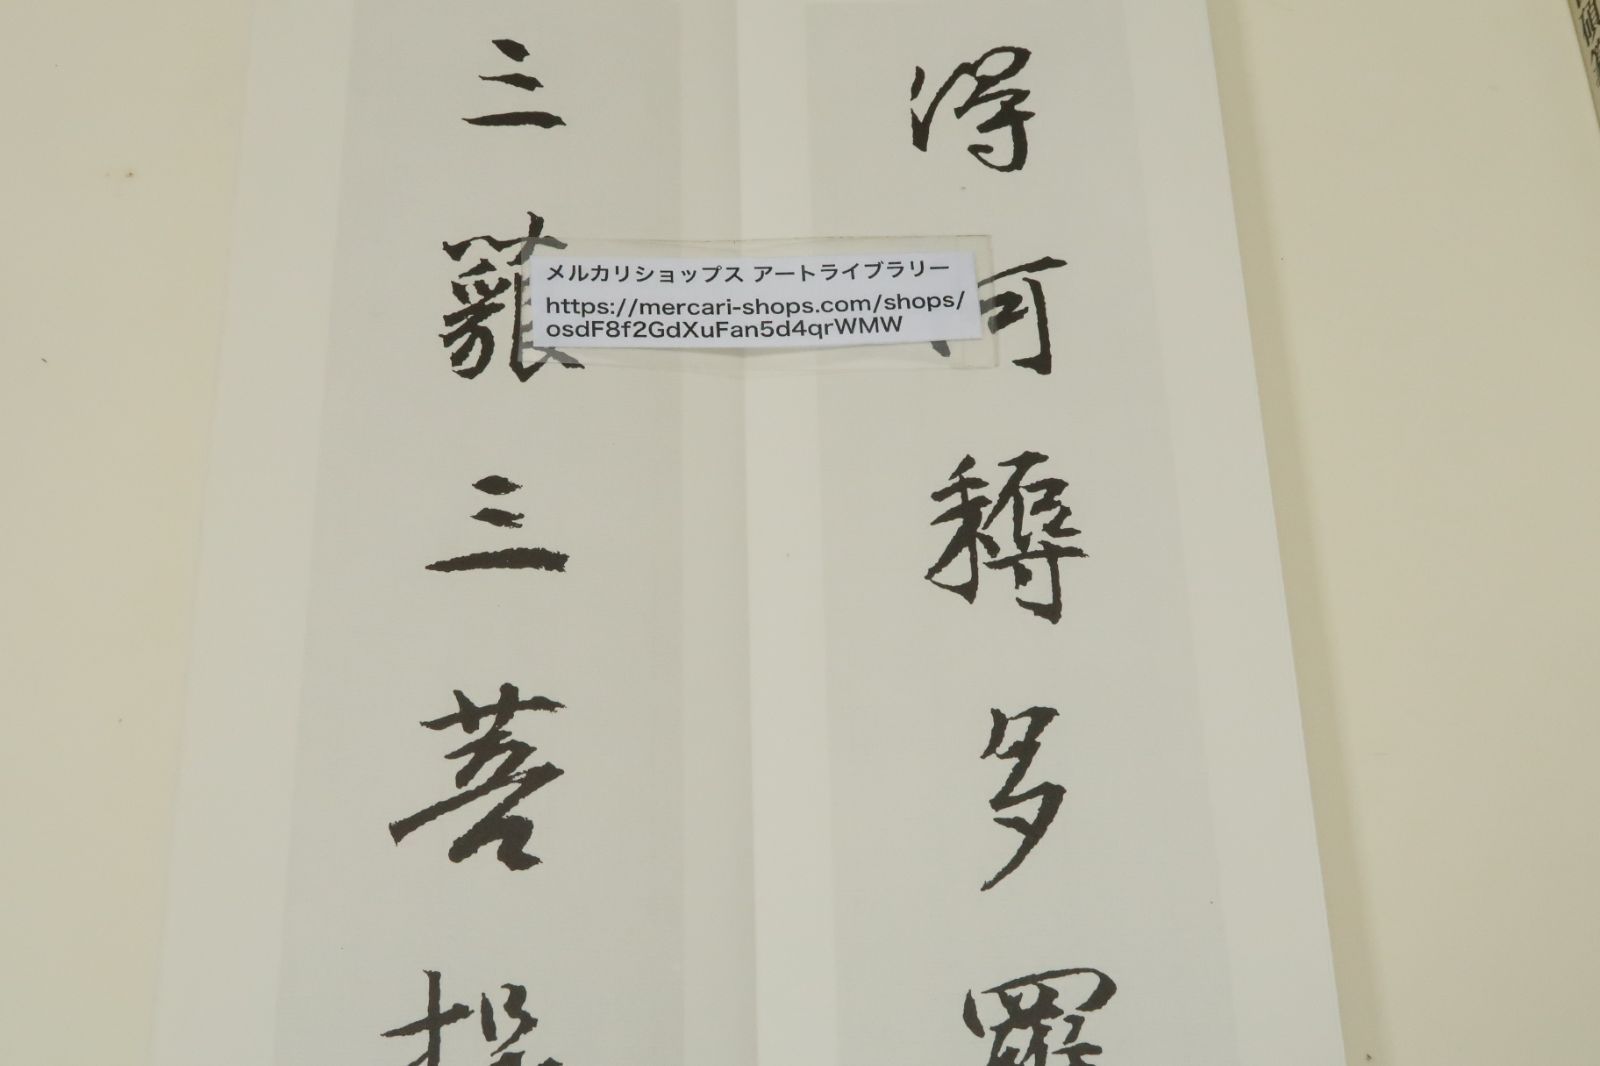 得
阿
耨
多
羅
三
藐
三
菩
提
メルカリショップス アートライブラリー
https://mercari-shops.com/shops/
osdF8f2GdXuFan5d4qrWMW